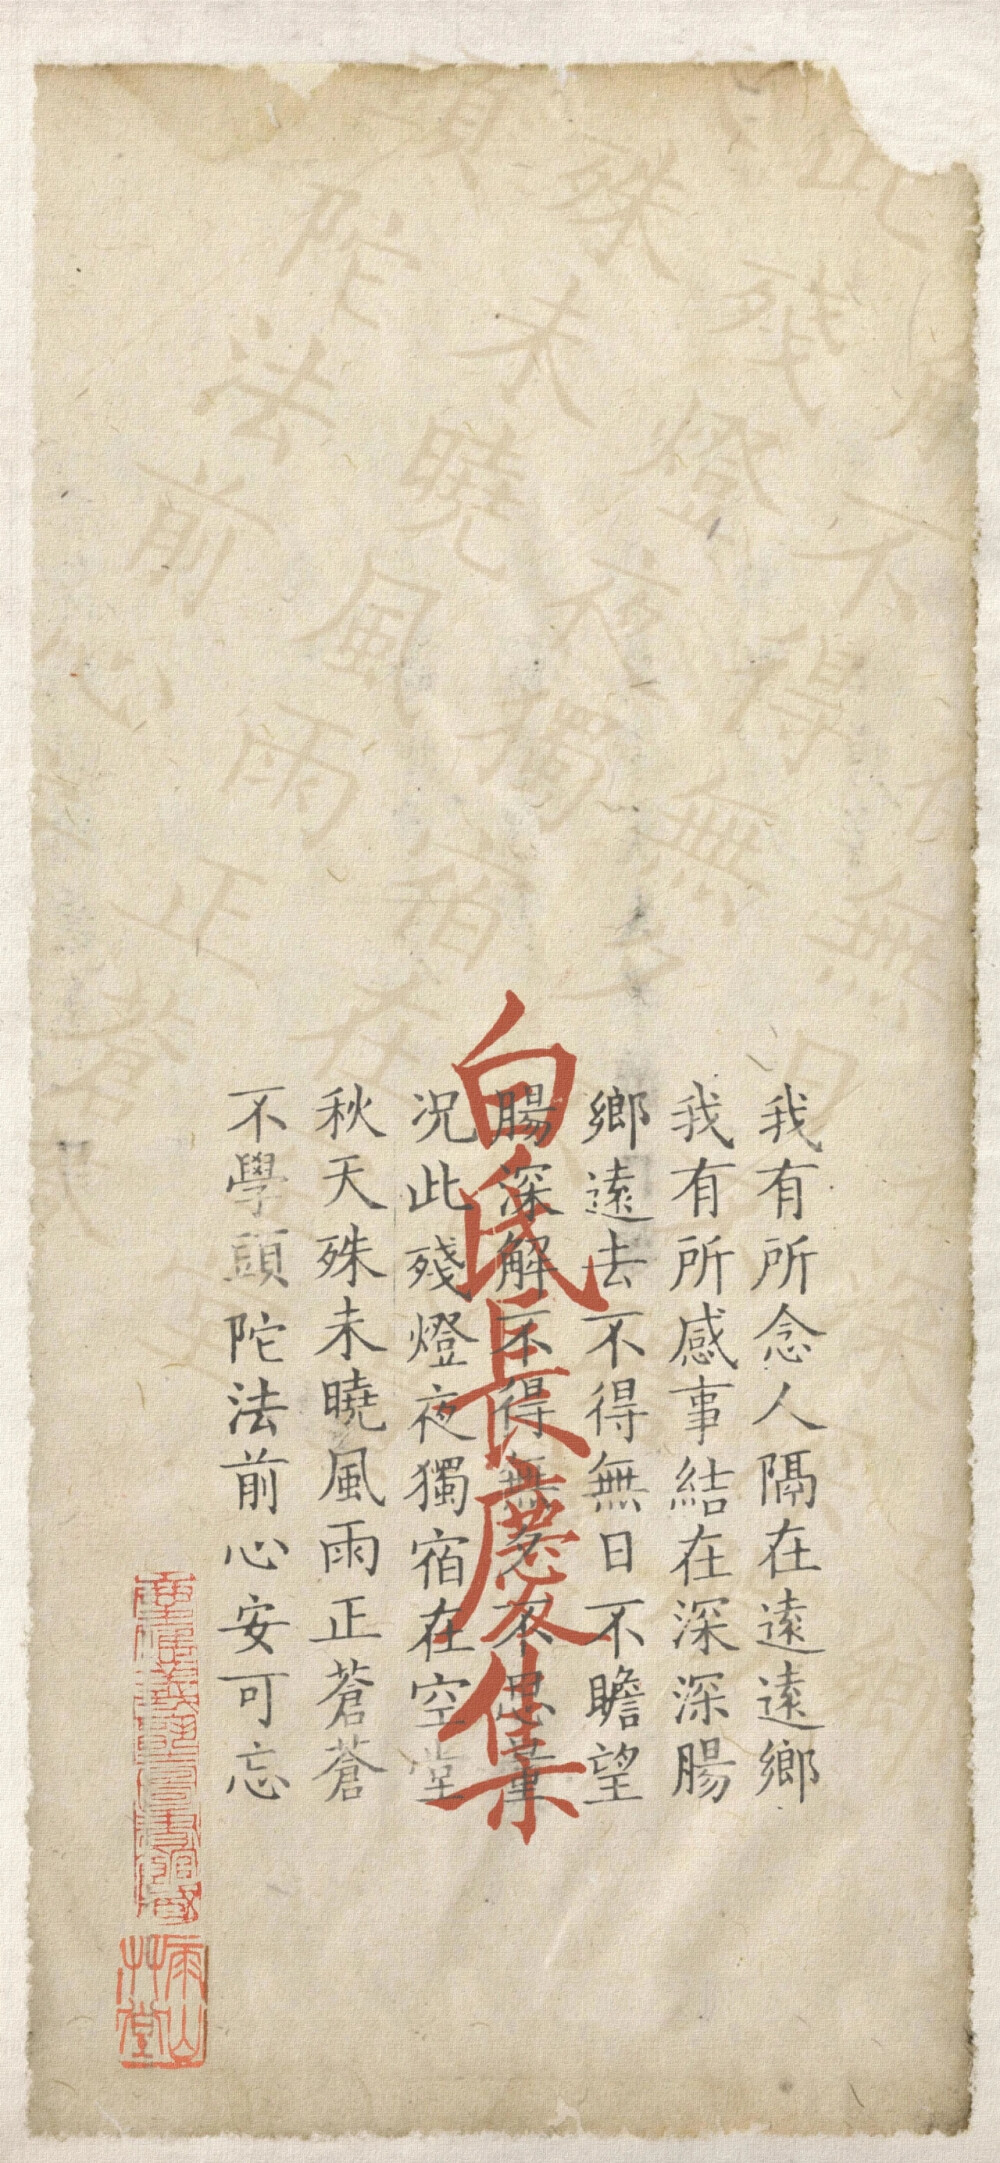 我有所念人隔在遠遠鄉
我有所感事結在深深腸
鄉遠去不得無日不瞻望
腸深解不得無夕不思量
况此殘燈夜獨宿在空堂
秋天殊未曉風雨正蒼蒼
不學頭陀法前心安可忘
白氏長慶集